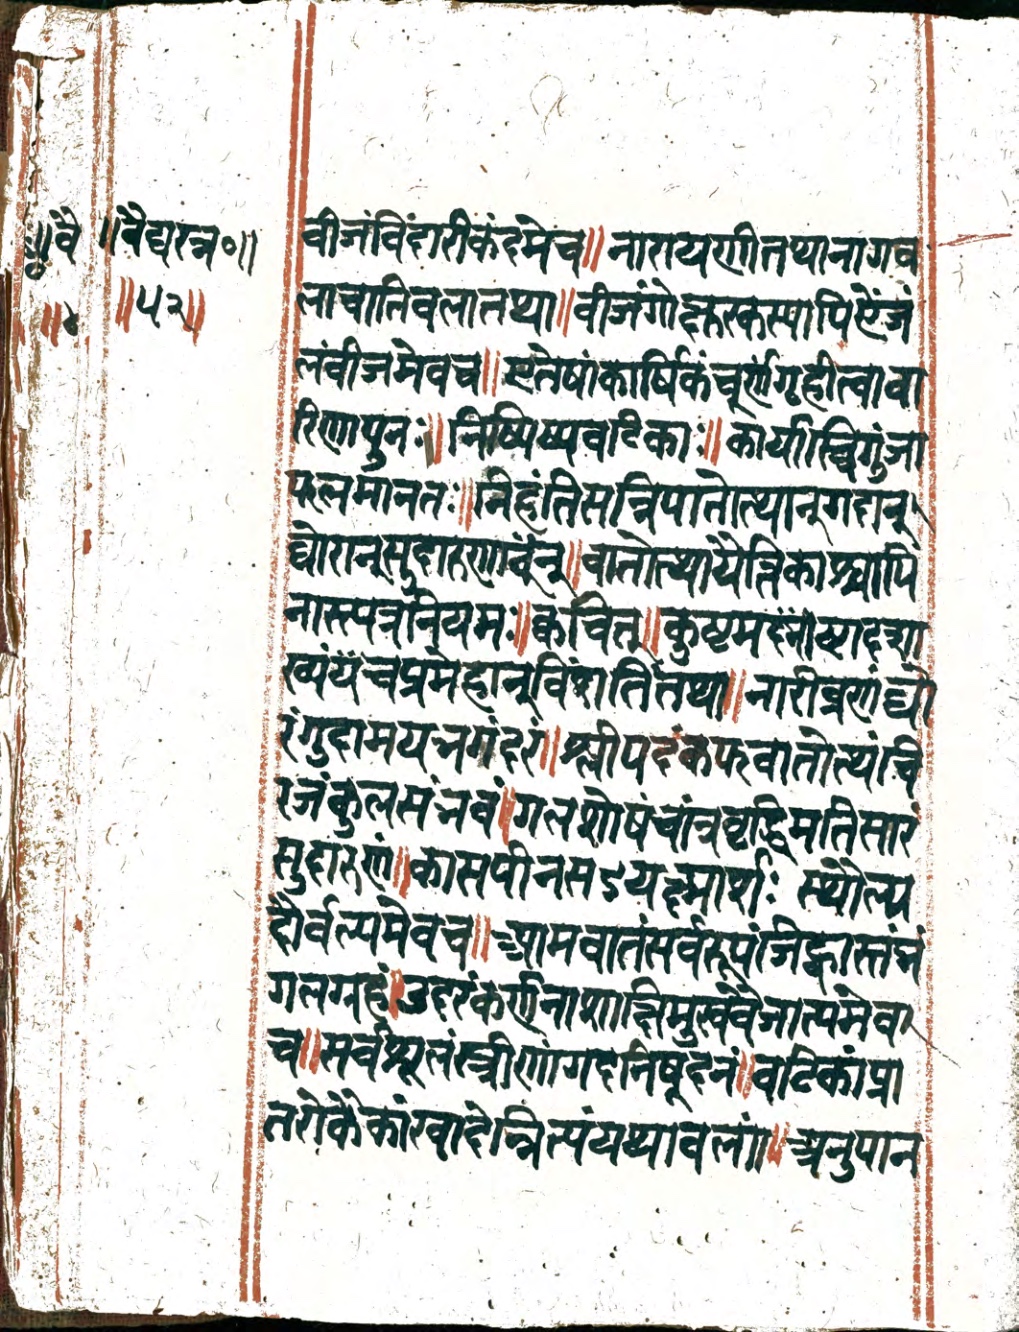 ॥वै ॥वैद्यरत्न०॥
॥५२॥
वीजंविदारीकंदमेच॥ नारायणीतथानागव
लाचातिवलातथा॥वीजंगोक्षुरकस्यापि
लंवीजमेवच॥ एतेषांकार्षिकंचूर्णंगृहीत्वावा
रिणापुनः॥निष्पिष्यवटिकाः॥ कार्यास्त्रिगुंजा
फलमानतः॥निहंतिसन्निपातोत्थान्गदान्
घोरान्सुदारुणान्॥वातोत्थापैत्तिकाश्चापि
नास्त्यत्रनियमः॥क्वचित्॥कुष्टमदशा
ख्यंचप्रमेहान्विंशतितथा॥नारीव्रणंघो
रंगुदामयभगंदरं॥श्लीपदंकफवातोत्थंचि
रजंकुलसंभवं॥गलशोषंचांत्रवृद्धिमतिसारं
सुदारुणं॥कासपीनसऽयक्ष्मार्शः स्थौल्य
दौर्वल्यमेवच॥आमवातंसर्वरूपंजिह्वास्तंभं
गलग्रहं॥उदरंकर्णनाशाक्षिमुखंवैजात्यमेवा
च॥सर्वशूलंस्त्रीणांगदनिषूदनं॥वटिकांप्रा
तरोकैकांखादेन्नित्यंयथावलं॥॥अनुपान